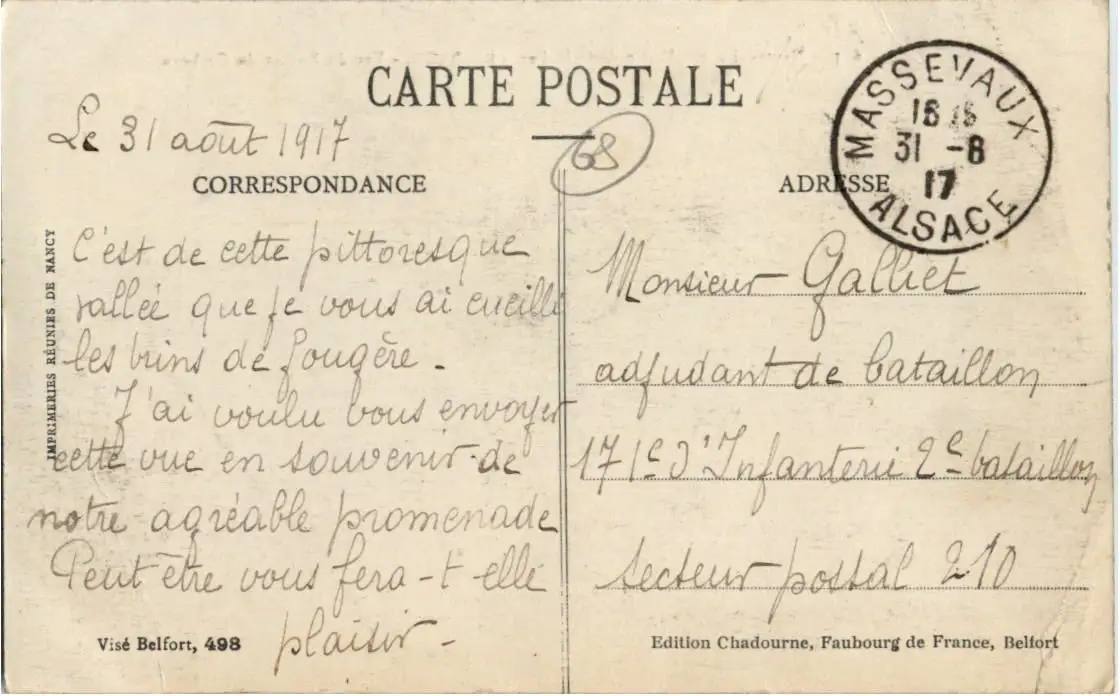 CARTE POSTALE
Le 31 août 1917
68
CORRESPONDANCE
ADRESSE
MASSEVAUX
16
31 -8
17
ALSACE
IMPRIMERIES RÉUNIES DE NANCY
C'est de cette pittoresque
vallée que je vous ai cueilli
les brins de fougère -
J'ai voulu vous envoyer
cette vue en souvenir de
notre agréable promenade
Peut être vous fera-t-elle
plaisir -
Monsieur Galliet
adjudant de bataillon
171e d'Infanterie 2e bataillon
secteur postal 210
Visé Belfort, 498
Edition Chadourne, Faubourg de France, Belfort